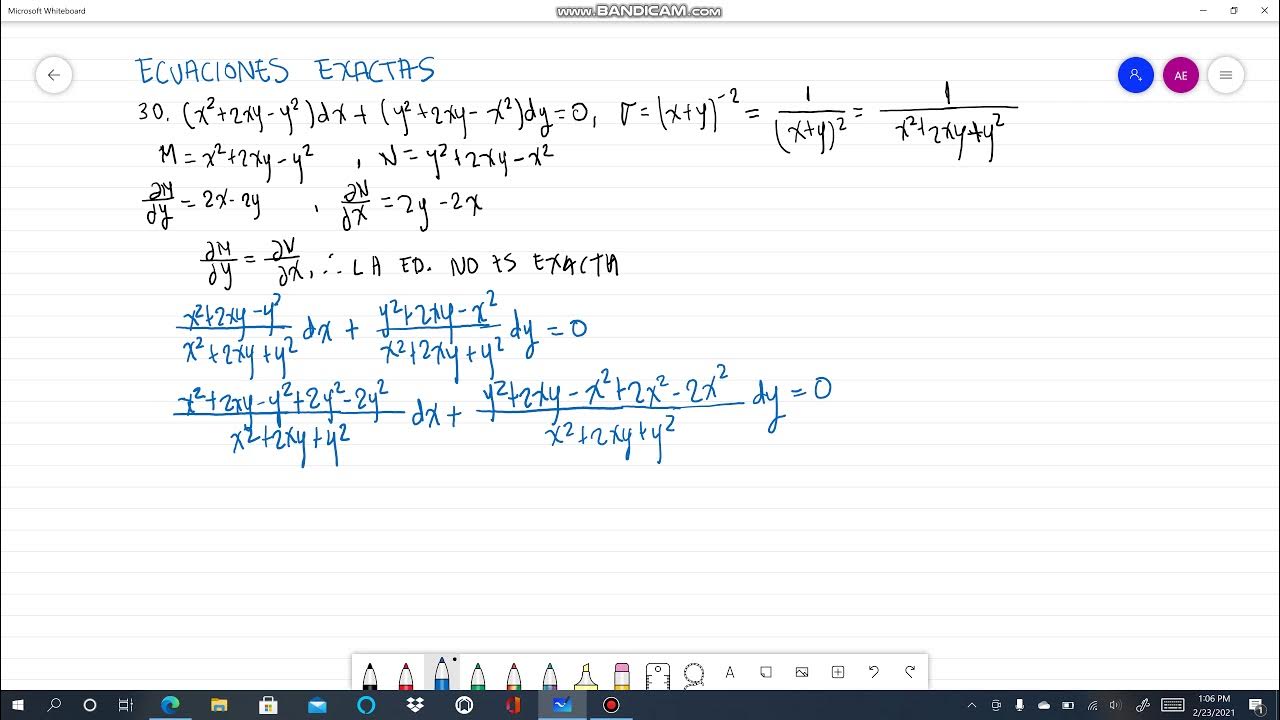 Microsoft Whiteboard
www.BANDICAM.com
AE
ECUACIONES EXACTAS
30. (x²+2xy-y²)dx + (y²+2xy-x²)dy=0, σ=(x+y)⁻² = 1/(x+y)² = 1/(x²+2xy+y²)
M = x²+2xy-y² , N = y²+2xy-x²
∂M/∂y = 2x-2y , ∂N/∂x = 2y-2x
∂M/∂y = ∂N/∂x, ∴ LA ED. NO ES EXACTA
(x²+2xy-y²)/(x²+2xy+y²) dx + (y²+2xy-x²)/(x²+2xy+y²) dy = 0
(x²+2xy-y²+2y²-2y²)/(x²+2xy+y²) dx + (y²+2xy-x²+2x²-2x²)/(x²+2xy+y²) dy = 0
A
1:06 PM
2/23/2021